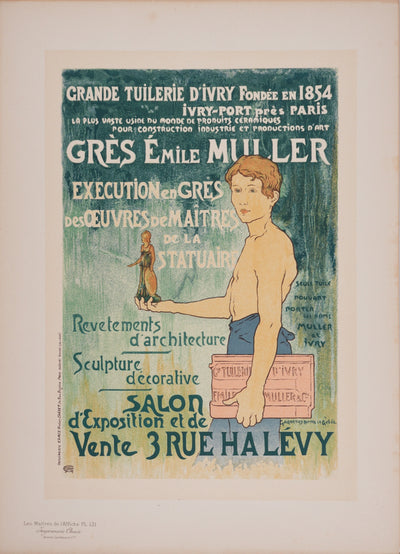 GRANDE TUILERIE D'IVRY FONDÉE EN 1854
IVRY-PORT près PARIS
LA PLUS VASTE USINE DU MONDE DE PRODUITS CERAMIQUES
POUR: CONSTRUCTION INDUSTRIE ET PRODUCTIONS D'ART
GRÈS ÉMILE MULLER
EXECUTION en GRÈS
des ŒUVRES de MAITRES
DE LA
STATUAIRE
SEULE TUILE
POUVANT
PORTER
LES NOMS
MULLER
ET
IVRY
Revetements
d'architecture
Sculpture
decorative
Gde TUILERIE D'IVRY
EMILE MULLER & Cie
SALON
d'Exposition et de
Vente 3 RUE HALÉVY
Les Maîtres de l'Affiche PL. 121
Imprimerie Chaix